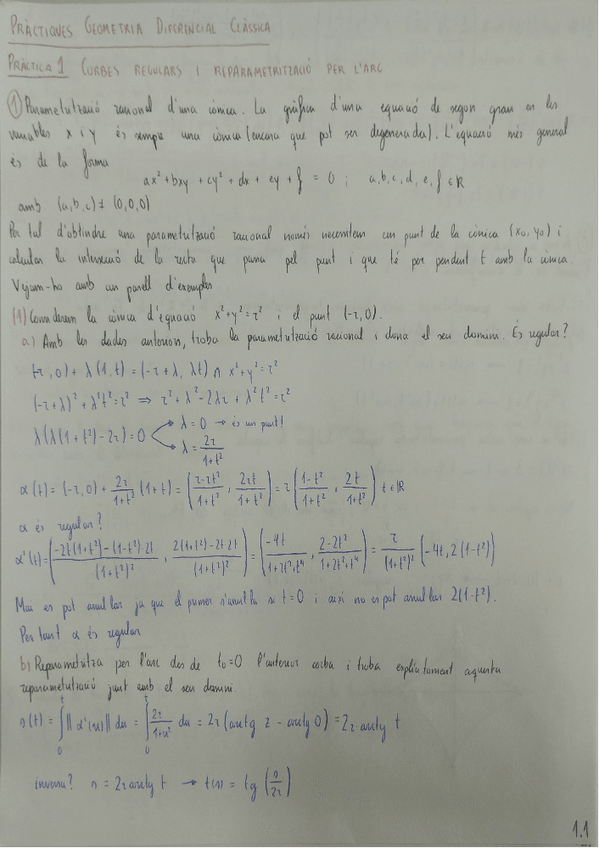 PRÀCTIQUES GEOMETRIA DIFERENCIAL CLÀSSICA
PRÀCTICA 1 CORBES REGULARS I REPARAMETRITZACIÓ PER L'ARC
① Parametrització racional d'una cònica. La gràfica d'una equació de segon grau en les
variables x i y és sempre una cònica (encara que pot ser degenerada). L'equació més general
és de la forma
ax² + bxy + cy² + dx + ey + f = 0 ; a,b,c,d,e,f ∈ ℝ
amb (a,b,c) ≠ (0,0,0)
Per tal d'obtindre una parametrització racional només necessitem un punt de la cònica (x₀,y₀) i
calcular la intersecció de la recta que passa pel punt i que té per pendent t amb la cònica
Vegem-ho amb un parell d'exemples
(1) Considerem la cònica d'equació x²+y²=r² i el punt (-r,0).
a) Amb les dades anteriors, troba la parametrització racional i dona el seu domini. És regular?
(-r,0) + λ(1,t) = (-r+λ, λt) ∩ x²+y²=r²
(-r+λ)² + λ²t² = r² ⇒ r² + λ² - 2λr + λ²t² = r²
λ(λ(1+t²)-2r) = 0 λ = 0 → és un punt!
λ = 2r/(1+t²)
α(t) = (-r,0) + 2r/(1+t²) (1+t) = ( (r-rt²)/(1+t²) , 2rt/(1+t²) ) = r ( (1-t²)/(1+t²) , 2t/(1+t²) ) t ∈ ℝ
α és regular?
α'(t) = ( (-2t(1+t²)-(1-t²)·2t)/(1+t²)² , (2(1+t²)-2t·2t)/(1+t²)² ) = ( -4t/(1+2t²+t⁴) , (2-2t²)/(1+2t²+t⁴) ) = r/(1+t²)² (-4t, 2(1-t²))
Mai es pot anul·lar ja que el primer s'anul·la si t=0 i així no es pot anul·lar 2(1-t²).
Per tant α és regular
b) Reparametritza per l'arc des de t₀=0 l'anterior corba i troba explícitament aquesta
reparametrització junt amb el seu domini.
s(t) = ∫₀ᵗ ||α'(u)|| du = ∫₀ᵗ 2r/(1+u²) du = 2r (arctg t - arctg 0) = 2r arctg t
inversa? s = 2r arctg t → t(s) = tg (s/2r)
1.1